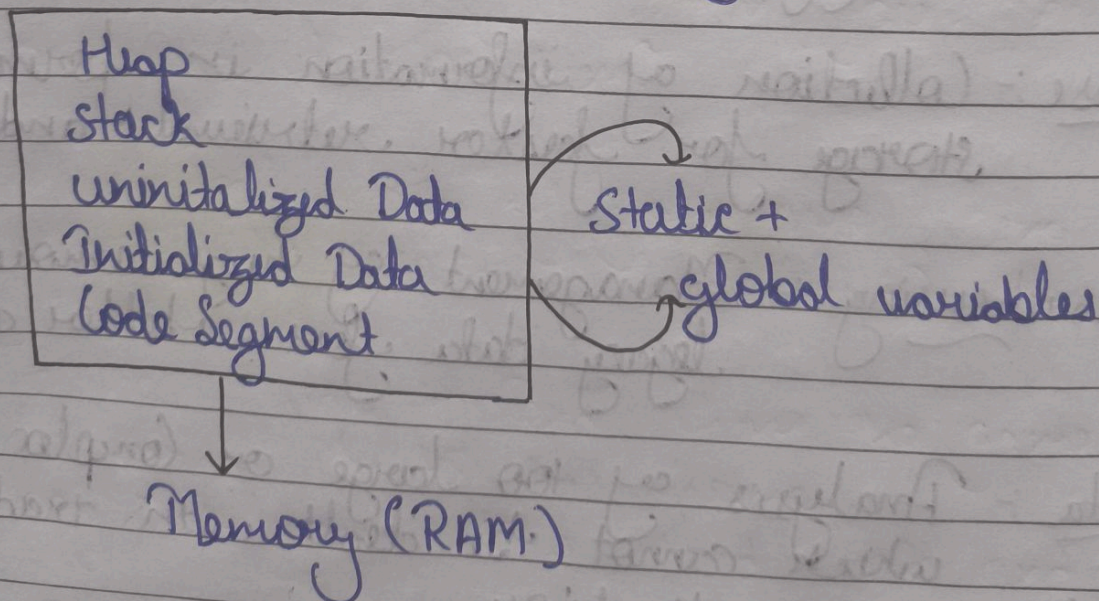 Heap
Stack
uninitalized Data
Initialized Data
Code Segment
Static +
global variables
Memory (RAM.)